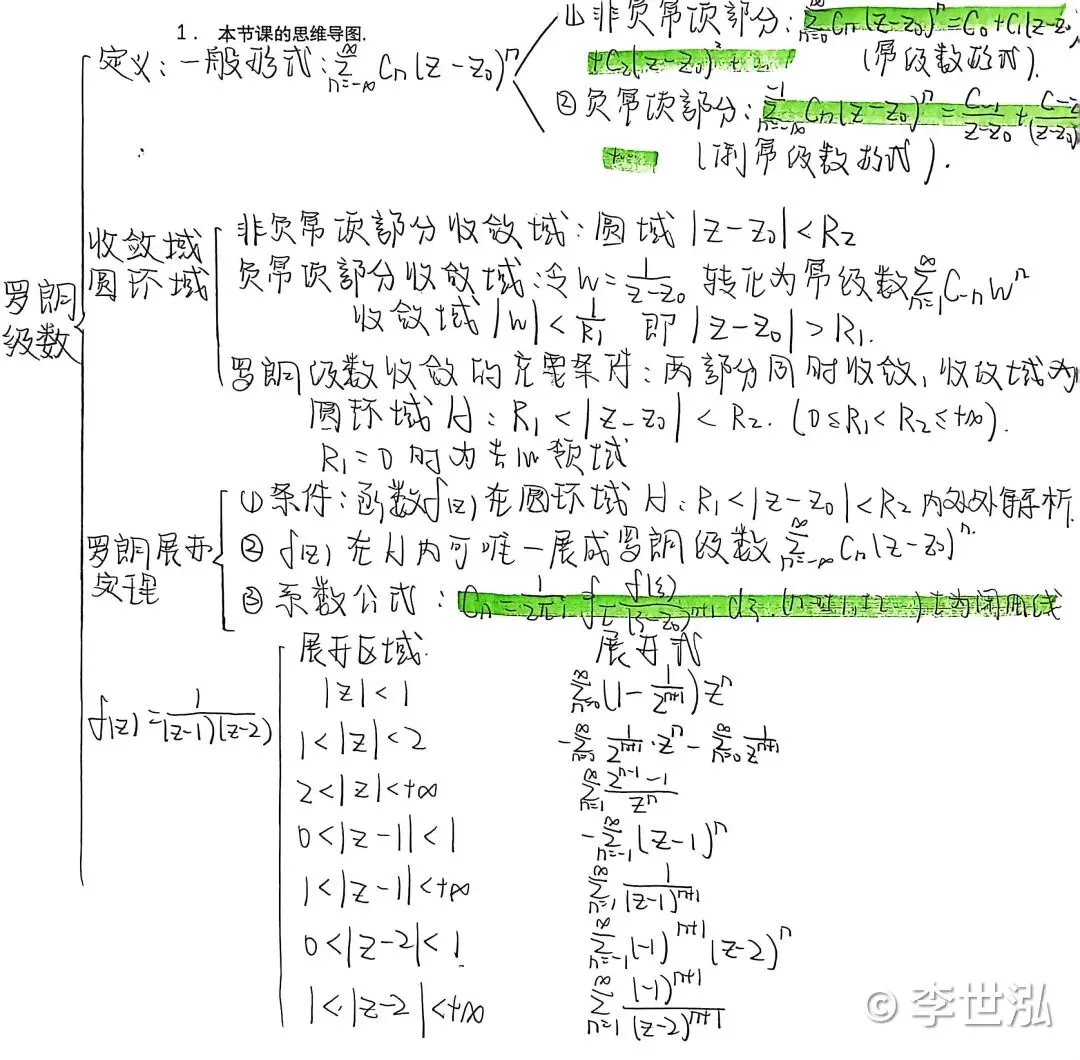 1. 本节课的思维导图.
罗朗级数
定义:一般形式:$\sum_{n=-\infty}^{\infty} C_n(z-z_0)^n$
① 非负幂项部分:$\sum_{n=0}^{\infty} C_n(z-z_0)^n = C_0+C_1(z-z_0)$
$+C_2(z-z_0)^2+\cdots$ (幂级数形式).
② 负幂项部分:$\sum_{n=-\infty}^{-1} C_n(z-z_0)^n = \frac{C_{-1}}{z-z_0}+\frac{C_{-2}}{(z-z_0)}$
$+\cdots$ (负幂级数形式).
收敛域
圆环域
非负幂项部分收敛域:圆域 $|z-z_0|<R_2$
负幂项部分收敛域:令 $w=\frac{1}{z-z_0}$ 转化为幂级数 $\sum_{n=1}^{\infty} C_{-n}w^n$
收敛域 $|w|<\frac{1}{R_1}$ 即 $|z-z_0|>R_1.$
罗朗级数收敛的充要条件:两部分同时收敛,收敛域为
圆环域 H:$R_1<|z-z_0|<R_2.$ $(0\le R_1<R_2\le +\infty).$
$R_1=0$ 时为去心领域
罗朗展开
定理
① 条件:函数 $f(z)$ 在圆环域 H:$R_1<|z-z_0|<R_2$ 内处处解析.
② $f(z)$ 在 H 内可唯一展成罗朗级数 $\sum_{n=-\infty}^{\infty} C_n(z-z_0)^n.$
③ 系数公式:$C_n=\frac{1}{2\pi i}\oint_L \frac{f(\xi)}{(\xi-z_0)^{n+1}}d\xi.$ $(n=\pm1,\pm2\ \cdots)$ L为闭曲线
$f(z)=\frac{1}{(z-1)(z-2)}$
展开区域. 展开式
$|z|<1$ $\sum_{n=0}^{\infty}(1-\frac{1}{2^{n+1}})z^n$
$1<|z|<2$ $-\sum_{n=0}^{\infty}\frac{1}{2^{n+1}}\cdot z^n-\sum_{n=0}^{\infty}\frac{1}{z^{n+1}}$
$2<|z|<+\infty$ $\sum_{n=1}^{\infty}\frac{2^{n-1}-1}{z^n}$
$0<|z-1|<1$ $-\sum_{n=-1}^{\infty}(z-1)^n$
$1<|z-1|<+\infty$ $\sum_{n=1}^{\infty}\frac{1}{(z-1)^{n+1}}$
$0<|z-2|<1.$ $\sum_{n=-1}^{\infty}(-1)^{n+1}(z-2)^n$
$1<|z-2|<+\infty$ $\sum_{n=1}^{\infty}\frac{(-1)^{n+1}}{(z-2)^{n+1}}$
© 李世泓